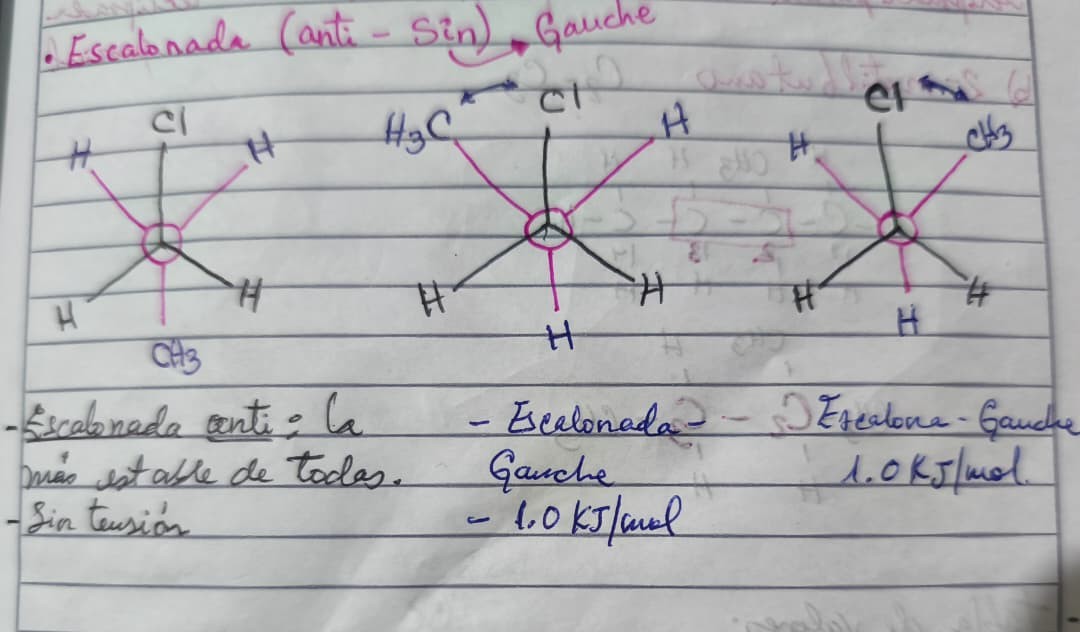 . Escalonada (anti - Sin) Gauche
Cl
H H
H H
CH3
Cl
H3C H
H H
H
Cl
H CH3
H H
H
- Escalonada anti : la
más estable de todas.
- Sin tensión
- Escalonada -
Gauche
- 1.0 KJ/mol
Escalona - Gauche
1.0 KJ/mol.